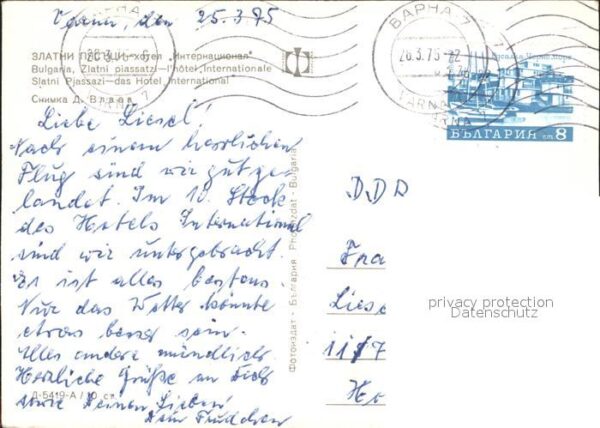 Varna, den 25.3.75
ВАРНА
26.3.75
VARNA 7
ЗЛАТНИ ПЯСЪЦИ – хотел „Интернационал"
Bulgaria, Zlatni piassatzi—l'hôtel Internationale
Slatni Pjassazi—das Hotel International
Снимка Д.
Liebe Liesel!
Nach einem herrlichen
Flug sind wir gut ge-
landet. Im 10. Stock
des Hotels International
sind wir untergebracht.
Es ist alles bestens.
Nur das Wetter könnte
etwas besser sein.
Alles andere mündlich.
Herzliche Grüße an Euch
sowie Deinen Lieben!
Dein Frudchen
Д-5419-А / 10 ст.
Фотоиздат - България Photoizdat - Bulgaria
ВАРНА 7
26.3.75-22
VARNA
БЪЛГАРИЯ ст 8
DDR
Fra
Liese
117
Ho
privacy protection
Datenschutz